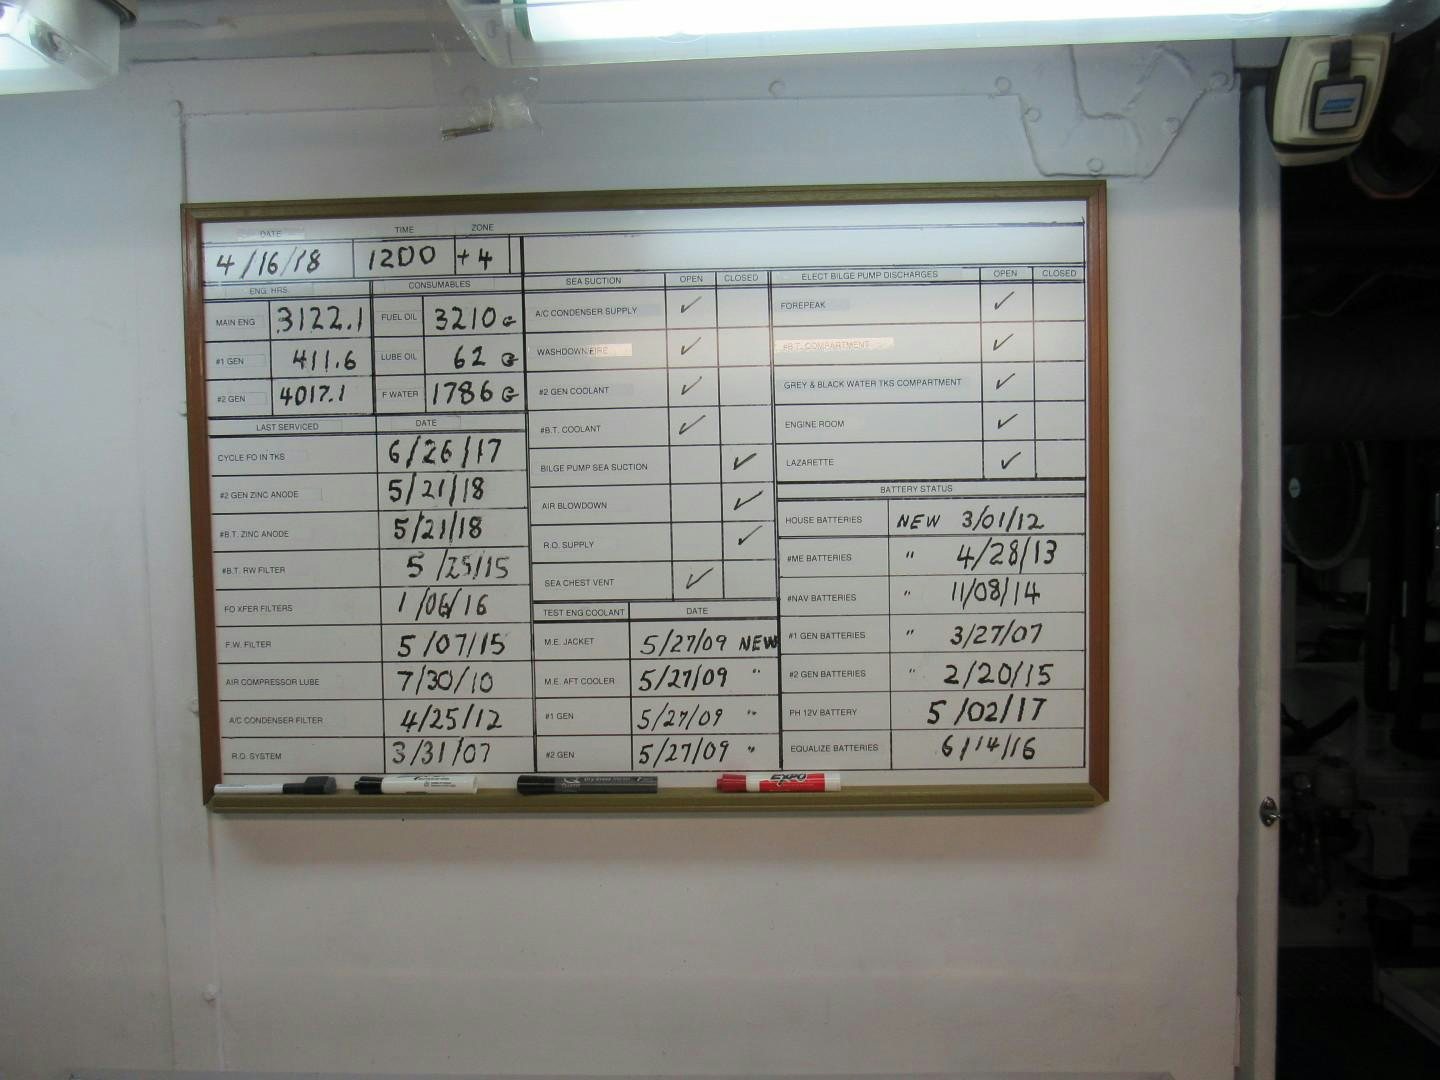 DATE TIME ZONE
4/16/18 1200 +4
ENG. HRS. CONSUMABLES
MAIN ENG 3122.1 FUEL OIL 3210 G
#1 GEN 411.6 LUBE OIL 62 G
#2 GEN 4017.1 F WATER 1786 G
LAST SERVICED DATE
CYCLE FO IN TKS 6/26/17
#2 GEN ZINC ANODE 5/21/18
#B.T. ZINC ANODE 5/21/18
#B.T. RW FILTER 5/25/15
FO XFER FILTERS 1/06/16
F.W. FILTER 5/07/15
AIR COMPRESSOR LUBE 7/30/10
A/C CONDENSER FILTER 4/25/12
R.O. SYSTEM 3/31/07
SEA SUCTION OPEN CLOSED
A/C CONDENSER SUPPLY ✓
WASHDOWN/FIRE ✓
#2 GEN COOLANT ✓
#B.T. COOLANT ✓
BILGE PUMP SEA SUCTION ✓
AIR BLOWDOWN ✓
R.O. SUPPLY ✓
SEA CHEST VENT ✓
TEST ENG COOLANT DATE
M.E. JACKET 5/27/09 NEW
M.E. AFT COOLER 5/27/09 "
#1 GEN 5/27/09 "
#2 GEN 5/27/09 "
ELECT BILGE PUMP DISCHARGES OPEN CLOSED
FOREPEAK ✓
#B.T. COMPARTMENT ✓
GREY & BLACK WATER TKS COMPARTMENT ✓
ENGINE ROOM ✓
LAZARETTE ✓
BATTERY STATUS
HOUSE BATTERIES NEW 3/01/12
#ME BATTERIES " 4/28/13
#NAV BATTERIES " 11/08/14
#1 GEN BATTERIES " 3/27/07
#2 GEN BATTERIES " 2/20/15
PH 12V BATTERY 5/02/17
EQUALIZE BATTERIES 6/14/16
EXPO